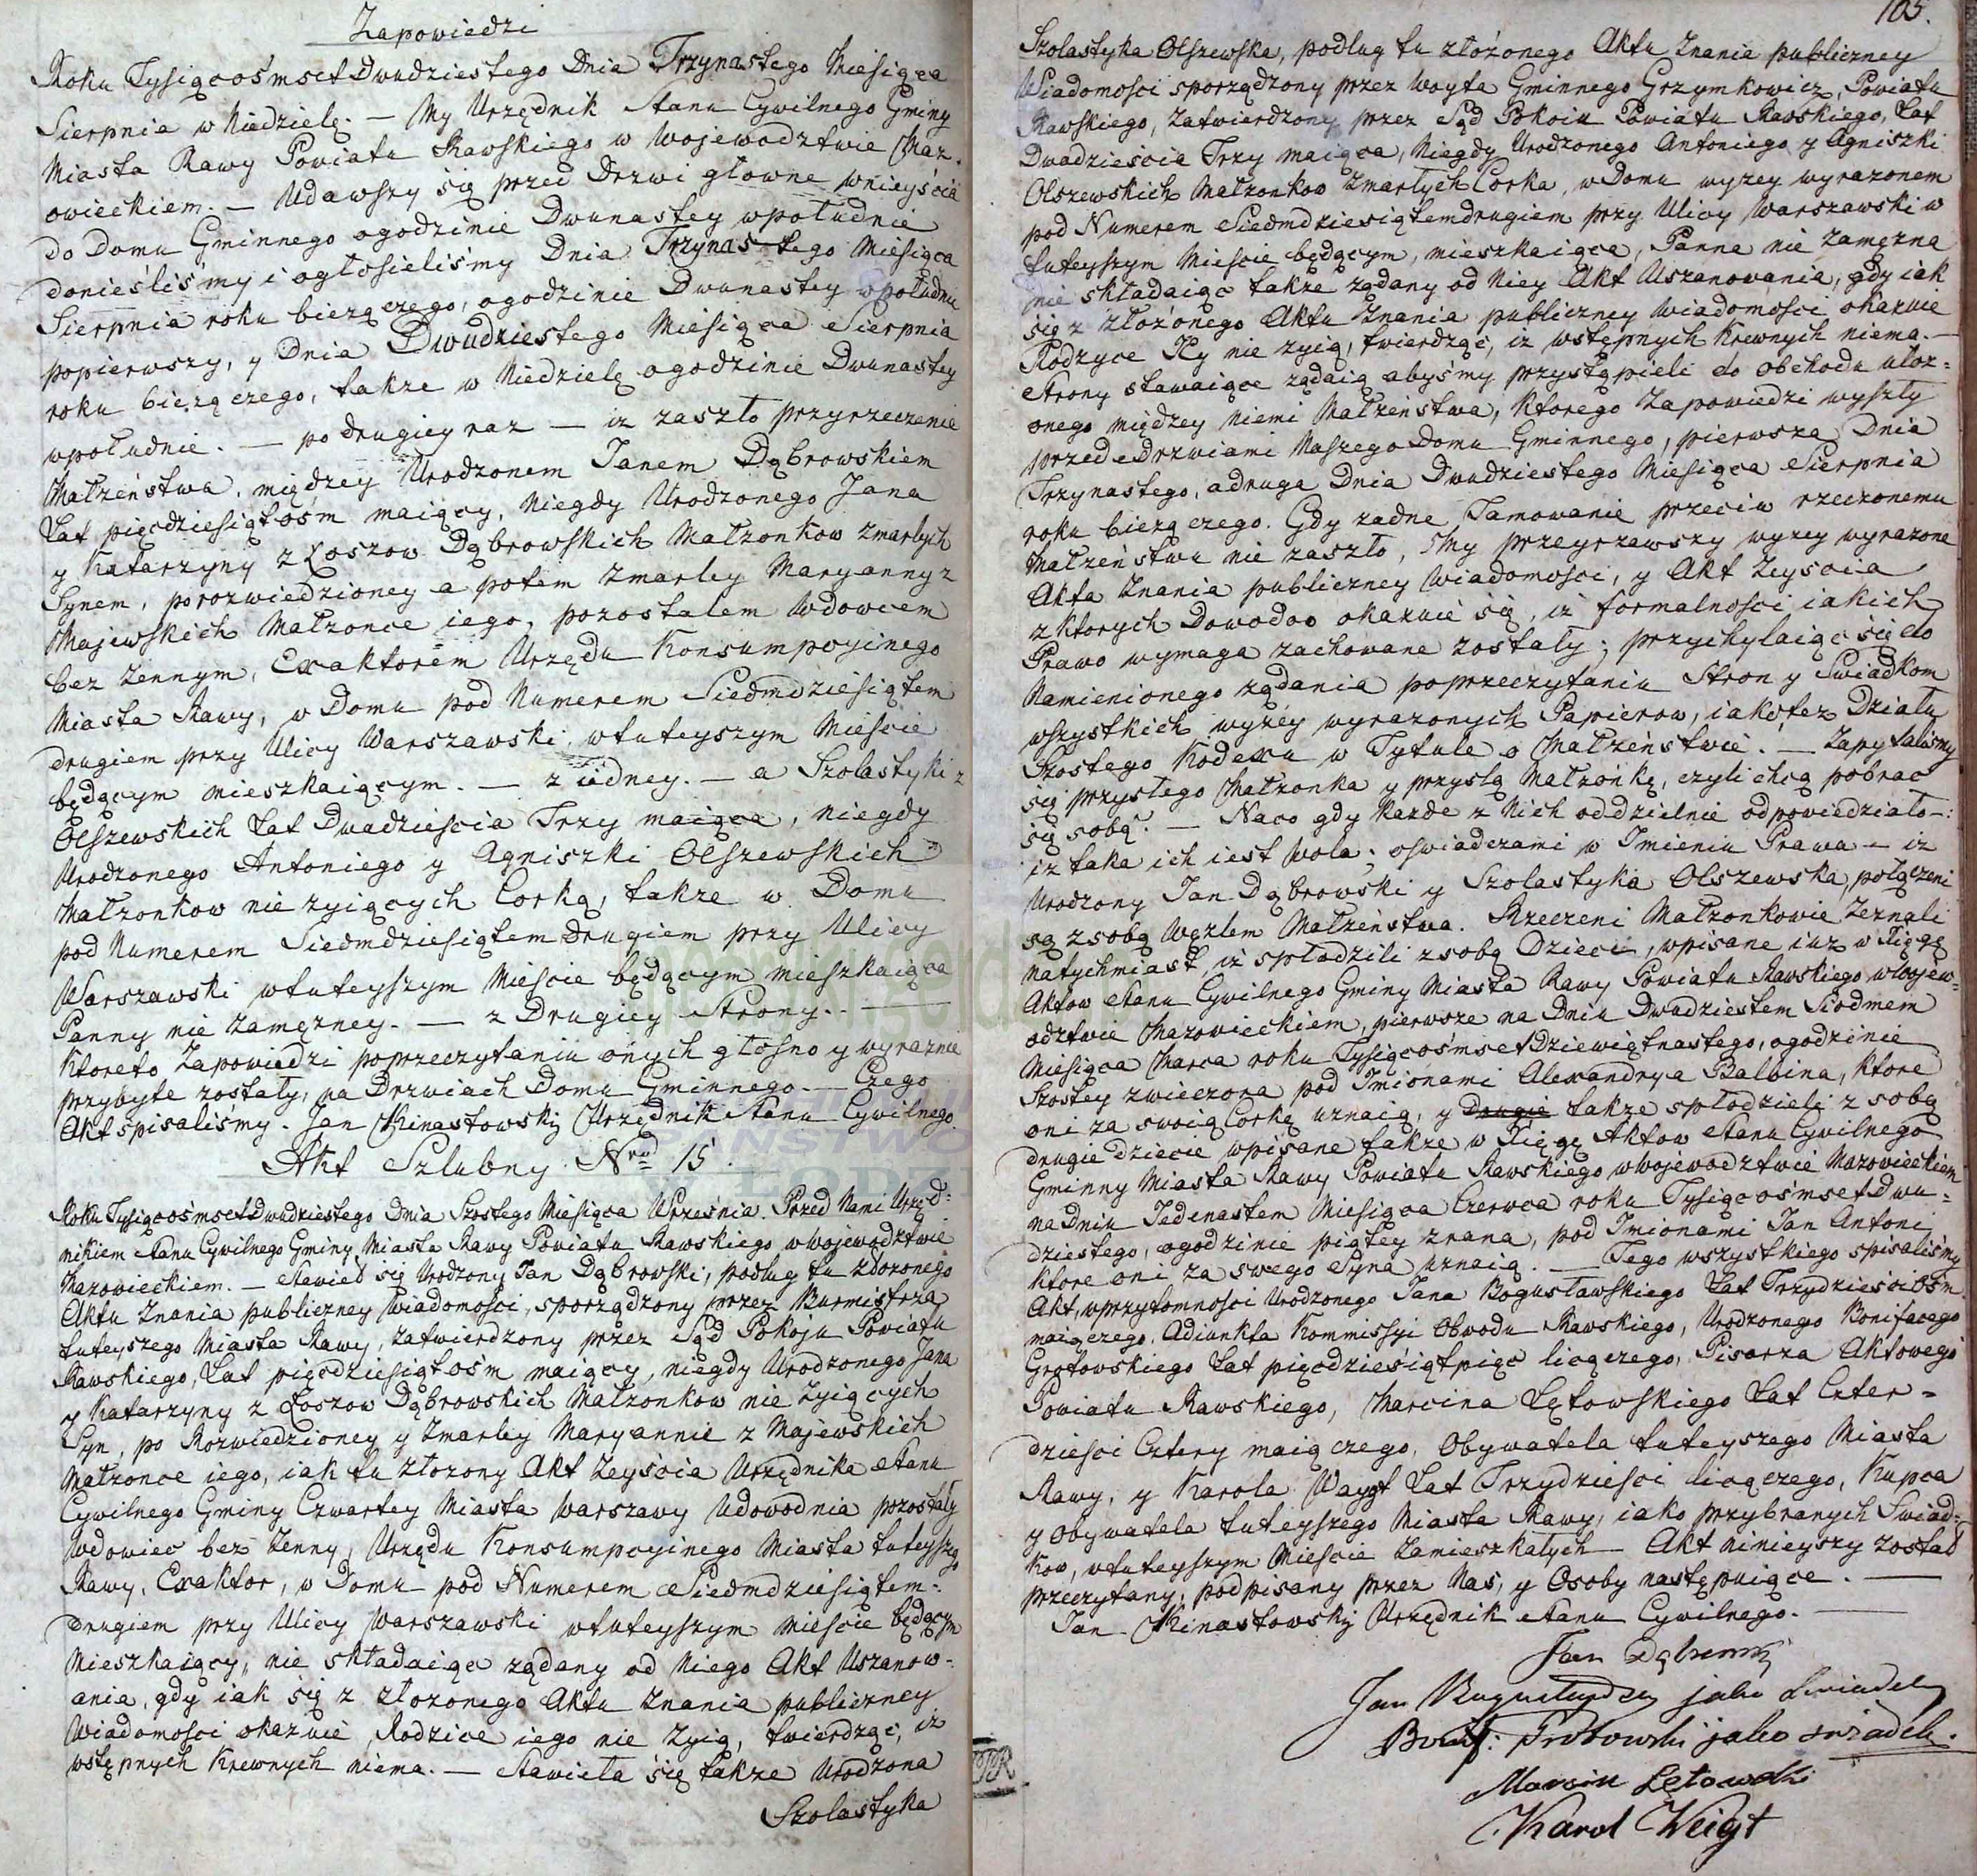 Zapowiedzi
Roku Tysiącośmset Dwudziestego Dnia Trzynastego Miesiąca
Sierpnia w Niedzielę. — My Urzędnik Stanu Cywilnego Gminy
Miasta Rawy Powiatu Rawskiego w Wojewodztwie Maz-
owieckiem. — Udawszy się przed Drzwi głowne wnieyścia
do Domu Gminnego ogodzinie Dwunastey wpołudnie
donieśliśmy i ogłosieliśmy Dnia Trzynastego Miesiąca
Sierpnia roku bieżączego, ogodzinie Dwunastey wpołudnie
popierwszy, y Dnia Dwudziestego Miesiąca Sierpnia
roku bieżączego, także w Niedzielę ogodzinie Dwunastey
wpołudnie. — po drugiey raz — iz zaszło przyrzeczenie
Małzeństwa, między Urodzonem Janem Dąbrowskiem
Lat pięcdziesiątośm maiący, niegdy Urodzonego Jana
y Katarzyny z Łoszow Dąbrowskich Małzonkow zmarłych
Synem, porozwiedzioney a potem zmarłey Maryanny z
Majewskich Małzonce iego, pozostałem Wdowcem
bez żennym, Exaktorem Urzędu Konsumpcyinego
Miasta Rawy, w Domu pod Numerem Siedmdziesiątem
drugiem przy Ulicy Warszawski wtuteyszym Mieście
będącym mieszkaiącym. — z iedney. — a Szolastyki z
Olszewskich Lat Dwadzieścia Trzy maiąca, niegdy
Urodzonego Antoniego y Agniszki Olszewskich
Małzonkow nie zyiących Corką, także w Domu
pod Numerem Siedmdziesiątem drugiem przy Ulicy
Warszawski wtuteyszym Mieście będącym mieszkaiąca
Panny nie zamęzney. — z Drugiey Strony. —
Ktoreto Zapowiedzi poprzeczytaniu onych głośno y wyraźnie
przybyte zostały, na Drzwiach Domu Gminnego. — Czego
Akt spisaliśmy. Jan Kinastowskij Urzędnik Stanu Cywilnego
Akt Szlubny Nro 15.
Roku Tysiącośmset Dwudziestego Dnia Szostego Miesiąca Września. Przed Nami Urzęd-
nikiem Stanu Cywilnego Gminy Miasta Rawy Powiatu Rawskiego wwojewodztwie
Mazowieckiem. — Stawieł się Urodzony Jan Dąbrowski, podług tu złozonego
Aktu Znania publiczney Wiadomości, sporządzony przez Burmistrza
tuteyszego Miasta Rawy, zatwierdzony przez Sąd Pokoju Powiatu
Rawskiego, Lat pięcdziesiątośm maiący, niegdy Urodzonego Jana
y Katarzyny z Łoszow Dąbrowskich Małzonkow nie zyiących
Syn, po Rozwiedzioney y Zmarłey Maryannie z Majewskich
Małzonce iego, iak tu złozony Akt Zeyścia Urzędnika Stanu
Cywilnego Gminy Czwartey Miasta Warszawy Udowodnia pozostały
Wdowiec bez żenny, Urzędu Konsumpcyinego Miasta tuteysze
Rawy, Exaktor, w Domu pod Numerem Siedmdziesiątem-
drugiem przy Ulicy Warszawski wtuteyszym Mieście będącym
Mieszkaiący, nie składaiąc ządany od Niego Akt Uszanow-
ania, gdy iak się z złozonego Aktu Znania publiczney
Wiadomości okazuie, Rodzice iego nie zyią, twierdząc, iz
wstępnych Krewnych niema. — Stawieła się także Urodzona
Szolastyka
105.
Szolastyka Olszewska, podług tu złożonego Aktu Znania publiczney
Wiadomości sporządzony przez Woyta Gminnego Grzymkowicz, Powiatu
Rawskiego, zatwierdzony przez Sąd Pokoiu Powiatu Rawskiego, Lat
Dwadzieścia Trzy maiąca, Niegdy Urodzonego Antoniego y Agniszki
Olszewskich Małzonkow zmarłych Corka, w Domu wyzey wyrazonem
pod Numerem Siedmdziesiątemdrugiem przy Ulicy Warszawski w
tuteyszym Mieście będącym, mieszkaiąca, Panna nie Zamęzna
nie składaiąc także ządany od Niey Akt Uszanowania, gdy iak
się z złożonego Aktu Znania publiczney wiadomości okazuie
Rodzyce Jey nie zyią, twierdząc, iz wstępnych Krewnych niema. —
Strony stawaiące ządaią abyśmy przystąpieli do obchodu ułoz-
onego międzey niemi Małzeństwa, ktorego Zapowiedzi wyszły
przed Drzwiami Naszego Domu Gminnego, pierwsza Dnia
Trzynastego, a druga Dnia Dwudziestego Miesiąca Sierpnia
roku bieżączego. Gdy zadne Tamowanie przeciw rzeczonemu
Małzeństwu nie zaszło, My przeyrzawszy wyzey wyrazone
Akta Znania publiczney Wiadomości, y Akt Zeyścia
z ktorych Dowodow okazuie się, iz formalności iakich
Prawo wymaga zachowane zostały; przychylaiąc się do
Namienionego ządania poprzeczytaniu Stron y Swiadkom
wszystkich wyzéy wyrazonych Papierow, iakotez Działu
Szostego Kodexu w Tytule o Małzeństwie. — Zapytaliśmy
się przyszłego Małzonka y przyszłą Małzónkę, czyli chcą pobrac
się sobą. — Naco gdy Kazde z Nich oddzielnie odpowiedziało —:
iz taka ich iest wola; oswiadczami w Imieniu Prawa — iz
Urodzony Jan Dąbrowski y Szolastyka Olszewska, połączeni
są z sobą Węzłem Małzeństwa. Rzeczeni Małzonkowie Zeznali
natychmiast, iz spłodzili z sobą Dzieci, wpisane iuz w Xięgę
Aktow Stanu Cywilnego Gminy Miasta Rawy Powiatu Rawskiego wwojew-
odztwie Mazowieckiem, pierwsze na Dniu Dwadziestem Siodmem
Miesiąca Marca roku Tysiącośmset Dziewiętnastego, ogodzinie
Szostey zwieczora pod Imionami Alexandrya Balbina, ktore
oni za swoią Corkę uznaią, y Drugie także spłodzieli z sobą
drugie dziecie wpisane także w Xięgę Aktow Stanu Cywilnego
Gminny Miasta Rawy Powiatu Rawskiego wwojewodztwie Mazowieckiem
na Dniu Jedenastem Miesiąca Czerwca roku Tysiącośmset Dwu-
dziestego, ogodzinie piątey zrana, pod Imionami Jan Antoni
ktore oni za swego Syna uznaią. — Tego wszystkiego spisaliśmy
Akt, wprzytomności Urodzonego Jana Bogusławskiego Lat Trzydzieściośm
maiączego, Adiunkta Kommissyi Obwodu Rawskiego, Urodzonego Bonifacego
Grotowskiego Lat pięcdziesiątpięc liczączego, Pisarza Aktowego
Powiatu Rawskiego, Marcina Łętowskiego Lat Czter-
dzieści Cztery maiączego, Obywatela tuteyszego Miasta
Rawy, y Karola Waygt Lat Trzydzieści liczączego, Kupca
y Obywatela tuteyszego Miasta Rawy, iako przybranych Swiad-
kow, wtuteyszym Mieście zamieszkałych — Akt ninieyszy został
przeczytany, podpisany przez Nas, y Osoby następuiące. —
Jan Kinastowskij Urzędnik Stanu Cywilnego. —
Jan Dąbrowski
Jan Bogusławski jako Swiadek
Bonif: Grotowski jako swiadek.
Marcin Łętowski
Karol Weigt